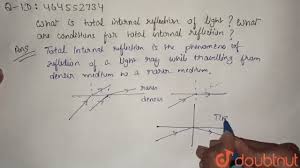 Q-ID: 464552734
What is total internal reflection of light? What
are conditions for total internal reflection?
Ans: Total Internal reflection is the phenomenon of
reflection of a light ray while travelling from
denser medium to a rarer medium.
rarer
denser
doubtnut